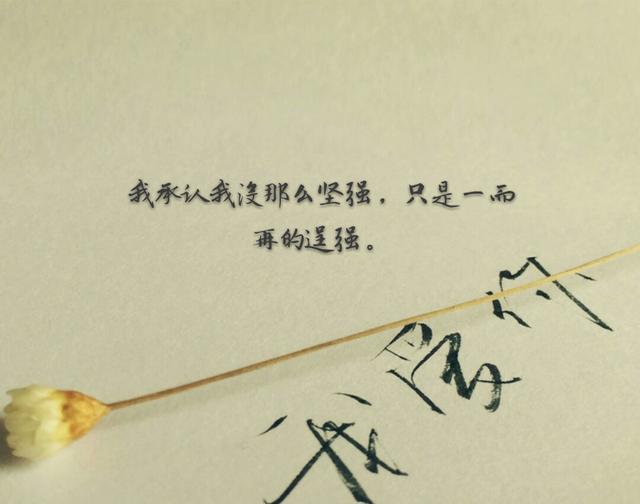 我承认我没那么坚强，只是一而
再的逞强。